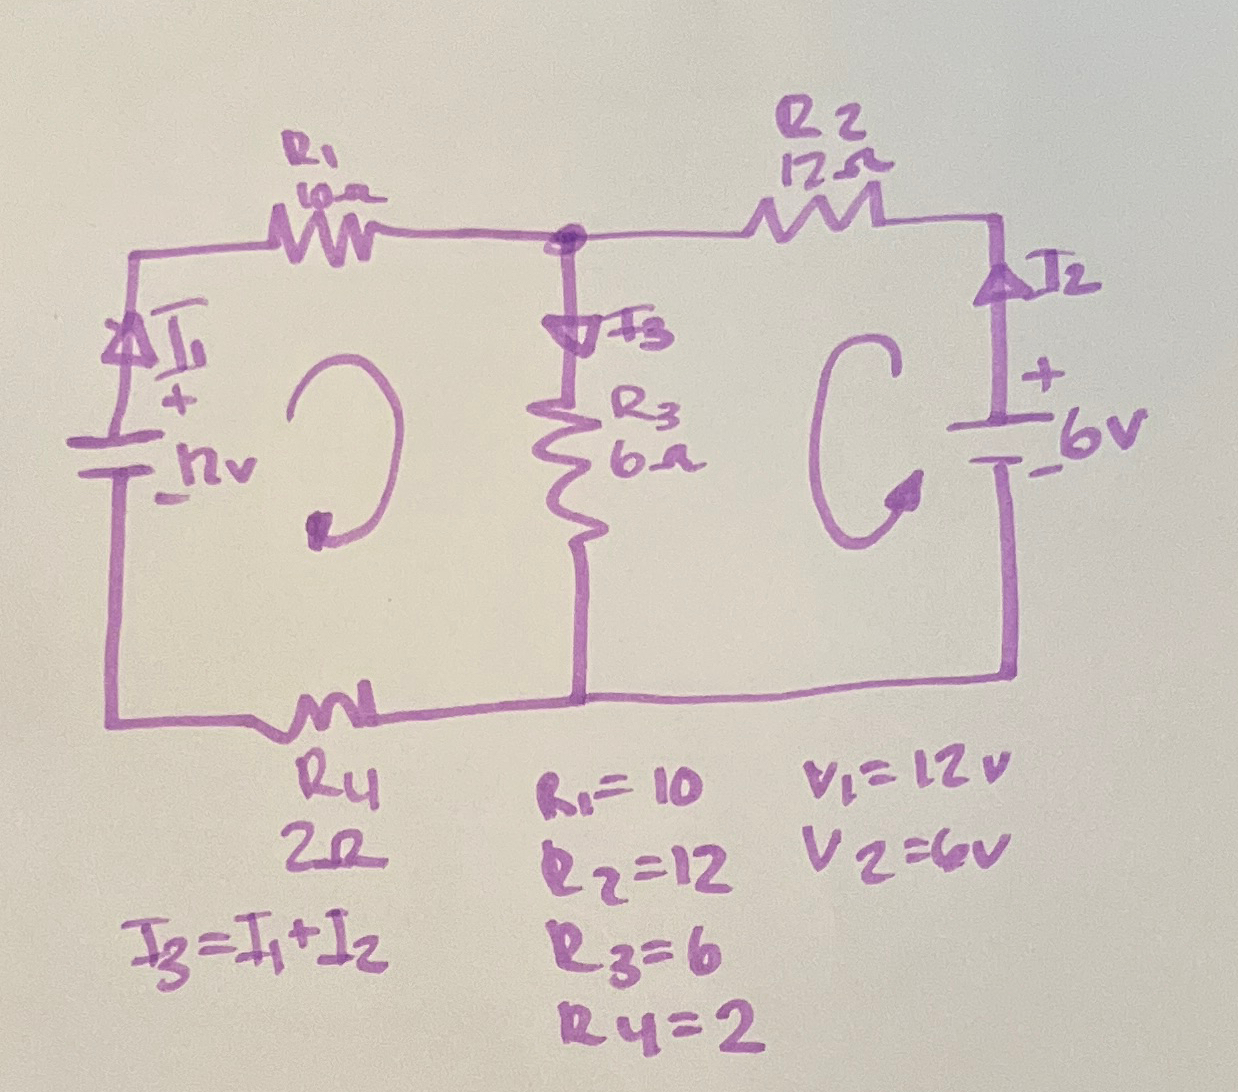 R1
10Ω
R2
12Ω
I1
+
12v
-
I3
R3
6Ω
I2
+
6V
-
R4
2Ω
I3=I1+I2
R1=10
R2=12
R3=6
R4=2
V1=12v
V2=6v